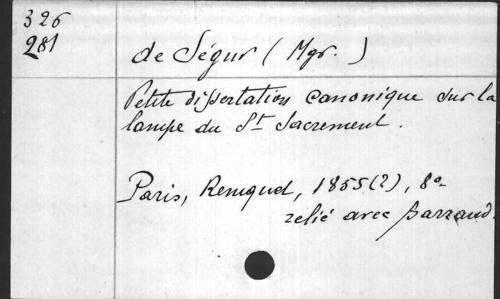 326
281
de Ségur (Mgr.)
Petite dissertation canonique sur la
lampe du St Sacrement.
Paris, Remquet, 1855(?), 8o-
relié avec Barraud.